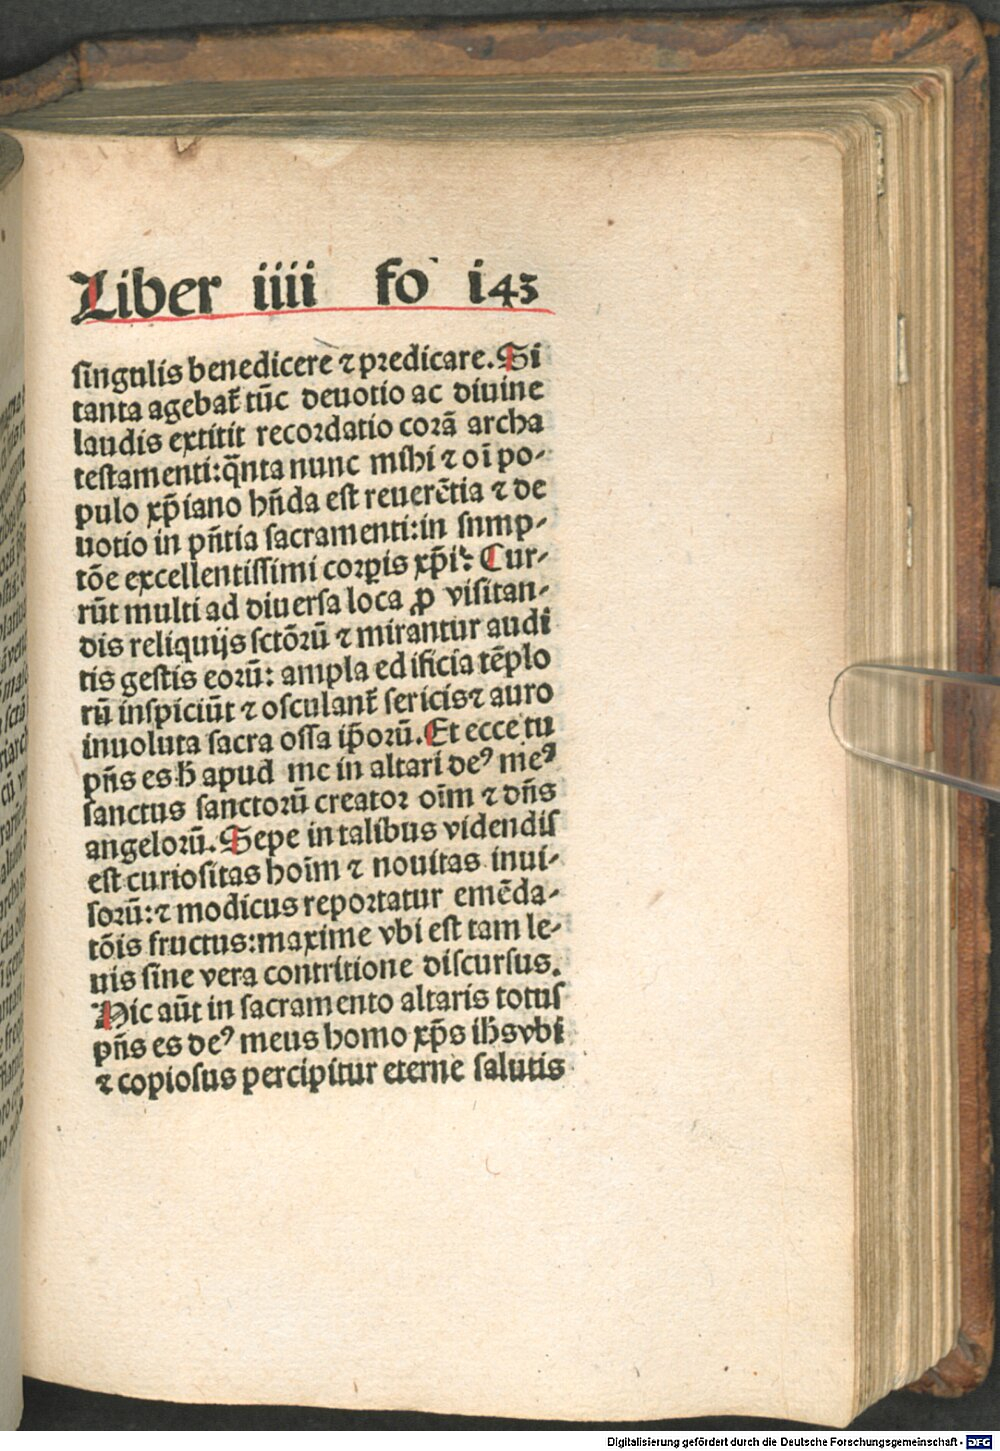 Liber iiii fo i43
singulis benedicere ⁊ predicare. Si
tanta agebat̃ tūc deuotio ac diuine
laudis extitit recordatio corā archa
testamenti: q̄nta nunc mihi ⁊ oī po-
pulo xp̄iano hñda est reuerētia ⁊ de
uotio in pñtia sacramenti: in snmp-
tōe excellentissimi corꝑis xp̄i? Cur-
rūt multi ad diuersa loca ꝓ visitan-
dis reliquijs sctōrū ⁊ mirantur audi
tis gestis eorū: ampla edificia tēplo
rū inspiciūt ⁊ osculant̃ sericis ⁊ auro
inuoluta sacra ossa ip̄orū. Et ecce tu
pñs es ħ apud me in altari deꝰ meꝰ
sanctus sanctorū creator oīm ⁊ dñs
angelorū. Sepe in talibus videndis
est curiositas hoīm ⁊ nouitas inui-
sorū: ⁊ modicus reportatur emēda-
tōis fructus: maxime vbi est tam le-
uis sine vera contritione discursus.
Hic aūt in sacramento altaris totus
pñs es deꝰ meus homo xp̄s iħs vbi
⁊ copiosus percipitur eterne salutis
Digitalisierung gefördert durch die Deutsche Forschungsgemeinschaft - DFG